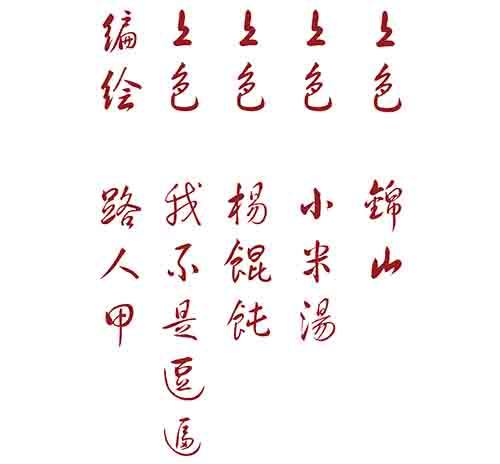 上色 錦山
上色 小米湯
上色 楊餛飩
上色 我不是逗逼
编绘 路人甲